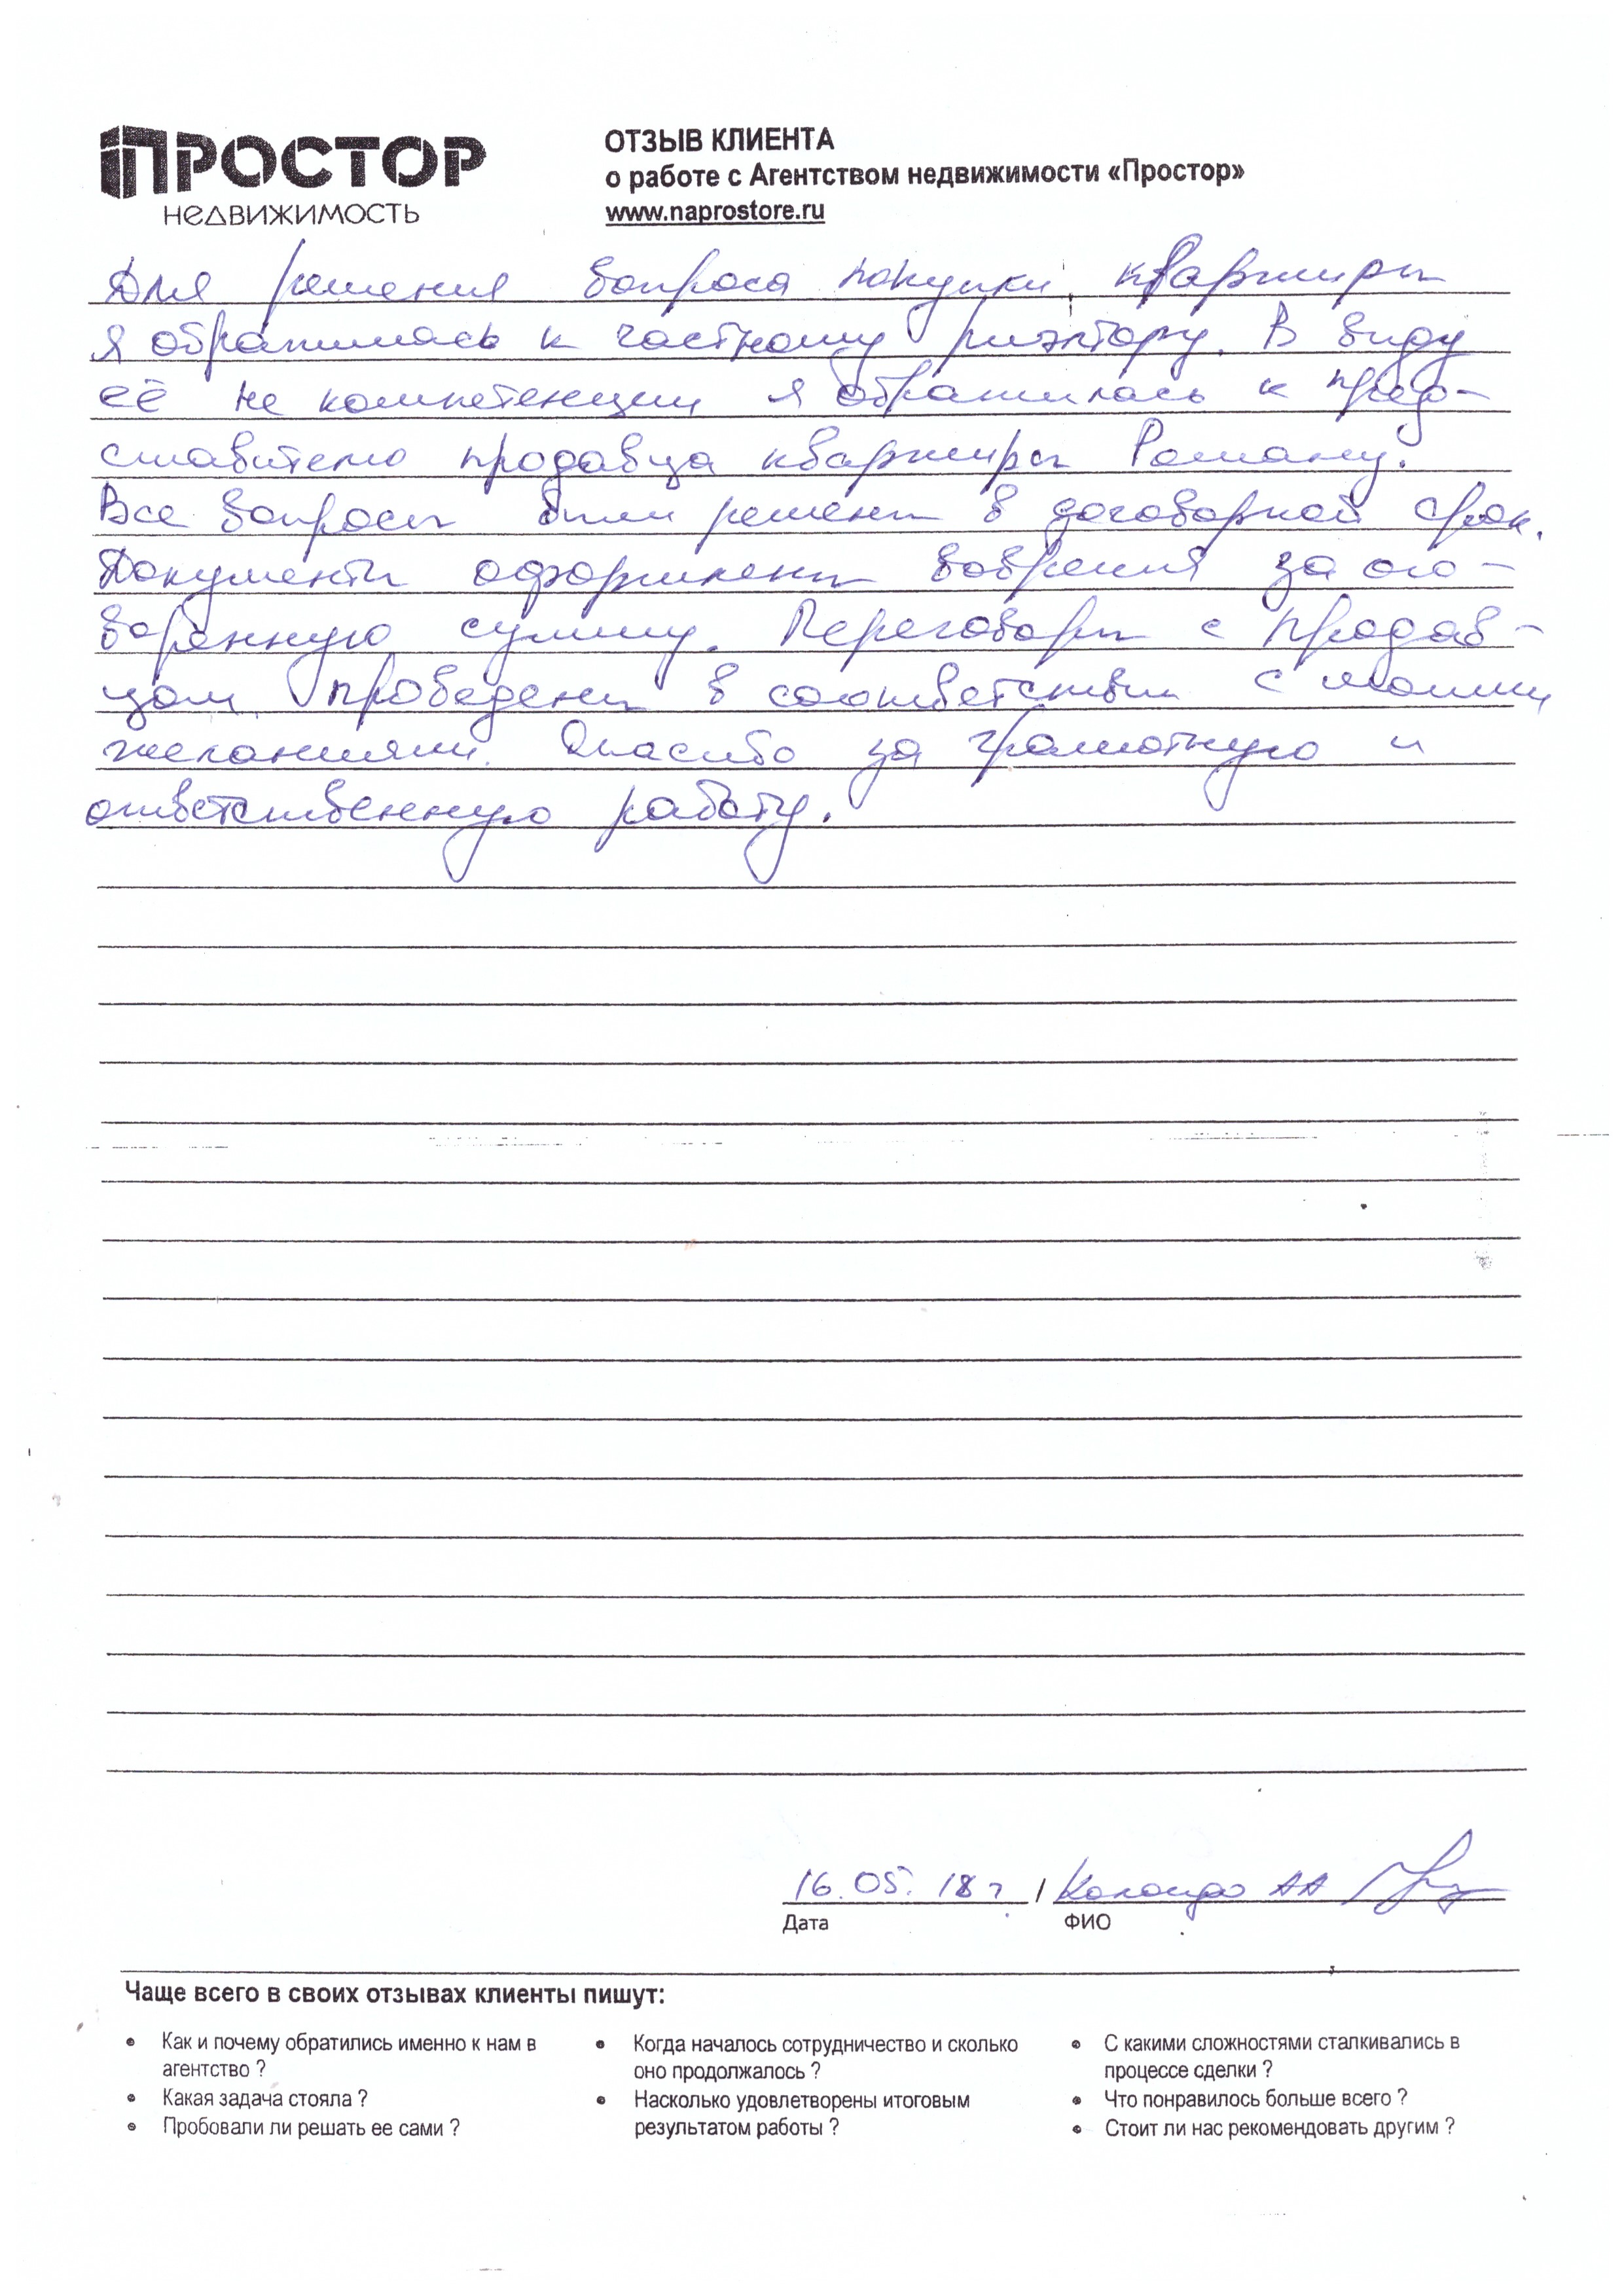 ПРОСТОР
НЕДВИЖИМОСТЬ
ОТЗЫВ КЛИЕНТА
о работе с Агентством недвижимости «Простор»
www.naprostore.ru
Для решения вопроса покупки квартиры
я обратилась к частному риэлтору. В виду
её не компетенции я обратилась к пред-
ставителю продавца квартиры Роману.
Все вопросы были решены в договорной срок.
Документы оформлены вовремя за ого-
воренную сумму. Переговоры с продав-
цом проведены в соответствии с моими
желаниями. Спасибо за грамотную и
ответственную работу.
16.05.18г / АА
Дата ФИО
Чаще всего в своих отзывах клиенты пишут:
• Как и почему обратились именно к нам в
агентство ?
• Какая задача стояла ?
• Пробовали ли решать ее сами ?
• Когда началось сотрудничество и сколько
оно продолжалось ?
• Насколько удовлетворены итоговым
результатом работы ?
• С какими сложностями сталкивались в
процессе сделки ?
• Что понравилось больше всего ?
• Стоит ли нас рекомендовать другим ?